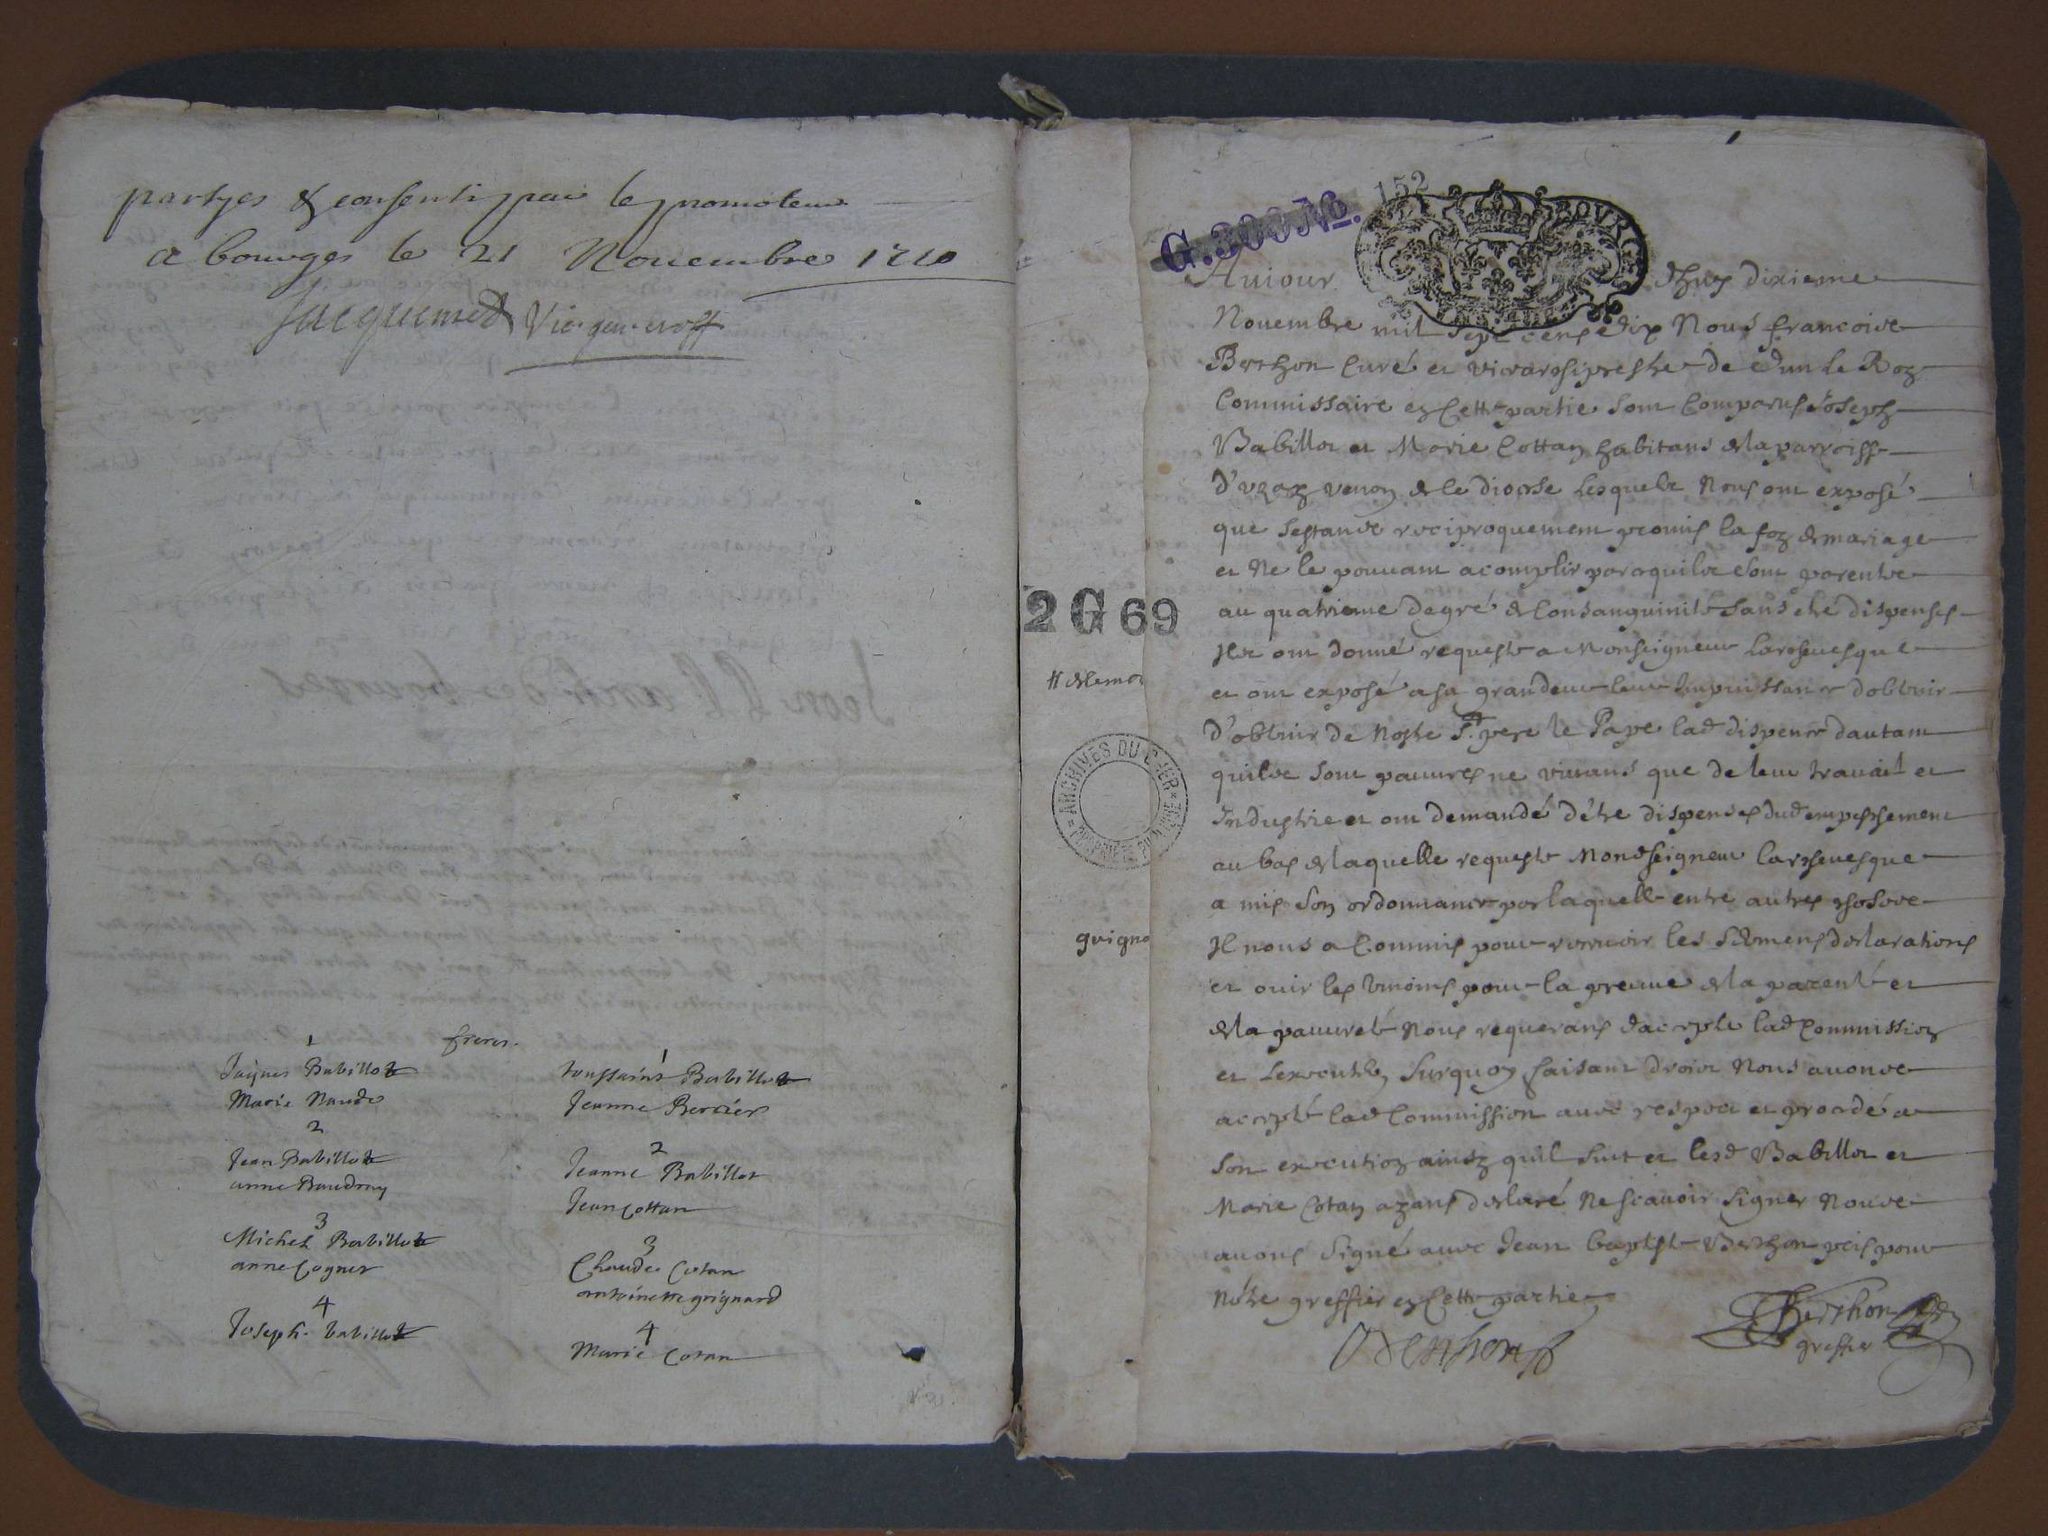 partyes & consenti par le promoteur
a bourges le 21 Novembre 1710
Jacquemet Vic. gen. & off.
freres.
1
Jaques Babillot
Marie Naude
2
Jean Babillot
anne Baudry
3
Michel Babillot
anne Cogner
4
Joseph babillot
1
toussaint Babillot
Jeanne Bercier
2
Jeanne Babillot
Jean Cottan
3
Claude Cotan
antoinette guignard
4
Marie Cotan
2 G 69
ARCHIVES DU CHER
guigna
G. 300
152
Aujour dhuy dixieme
Novembre mil sept cens dix Nous francois
Berthon Curé et vicarchiprestre de Dun le Roy
Commissaire en Cette partie sont Comparus Joseph
Babillot et Marie Cottan habitans de la parroisse
d'uzay venon de ce diocese Lesquels Nous ont exposé
que sestants reciproquement promis la foy de mariage
et Ne le pouvant acomplir par ce quils sont parents
au quatrieme degré de Consanguinité sans etre dispensés
Ils ont donné requeste a Monseigneur Larchevesque
et ont exposé a sa grandeur leur impuissance d'obtenir
d'obtenir de Nostre St. pere le Pape lad dispense dautant
quils sont pauvres ne vivans que de leur travail et
Industrie et ont demandé d'être dispensés dud empeschement
au bas de laquelle requeste Monseigneur larchevesque
a mis son ordonnance par laquelle entre autres choses
Il nous a Commis pour recevoir les sermens declarations
et ouir les temoins pour la preuve de la parenté et
de la pauvreté Nous requerans daccepter lad Commission
et Lexecuter, Surquoy faisant droit Nous avons
accepté lad Commission avec respect et procedé a
son execution ainsy quil suit et lesd Babillot et
Marie Cotan ayans declaré Ne scavoir signer Nous
avons signé avec Jean baptiste Berthon pris pour
Nôtre greffier en Cette partie
Berthon
Berthon
greffier